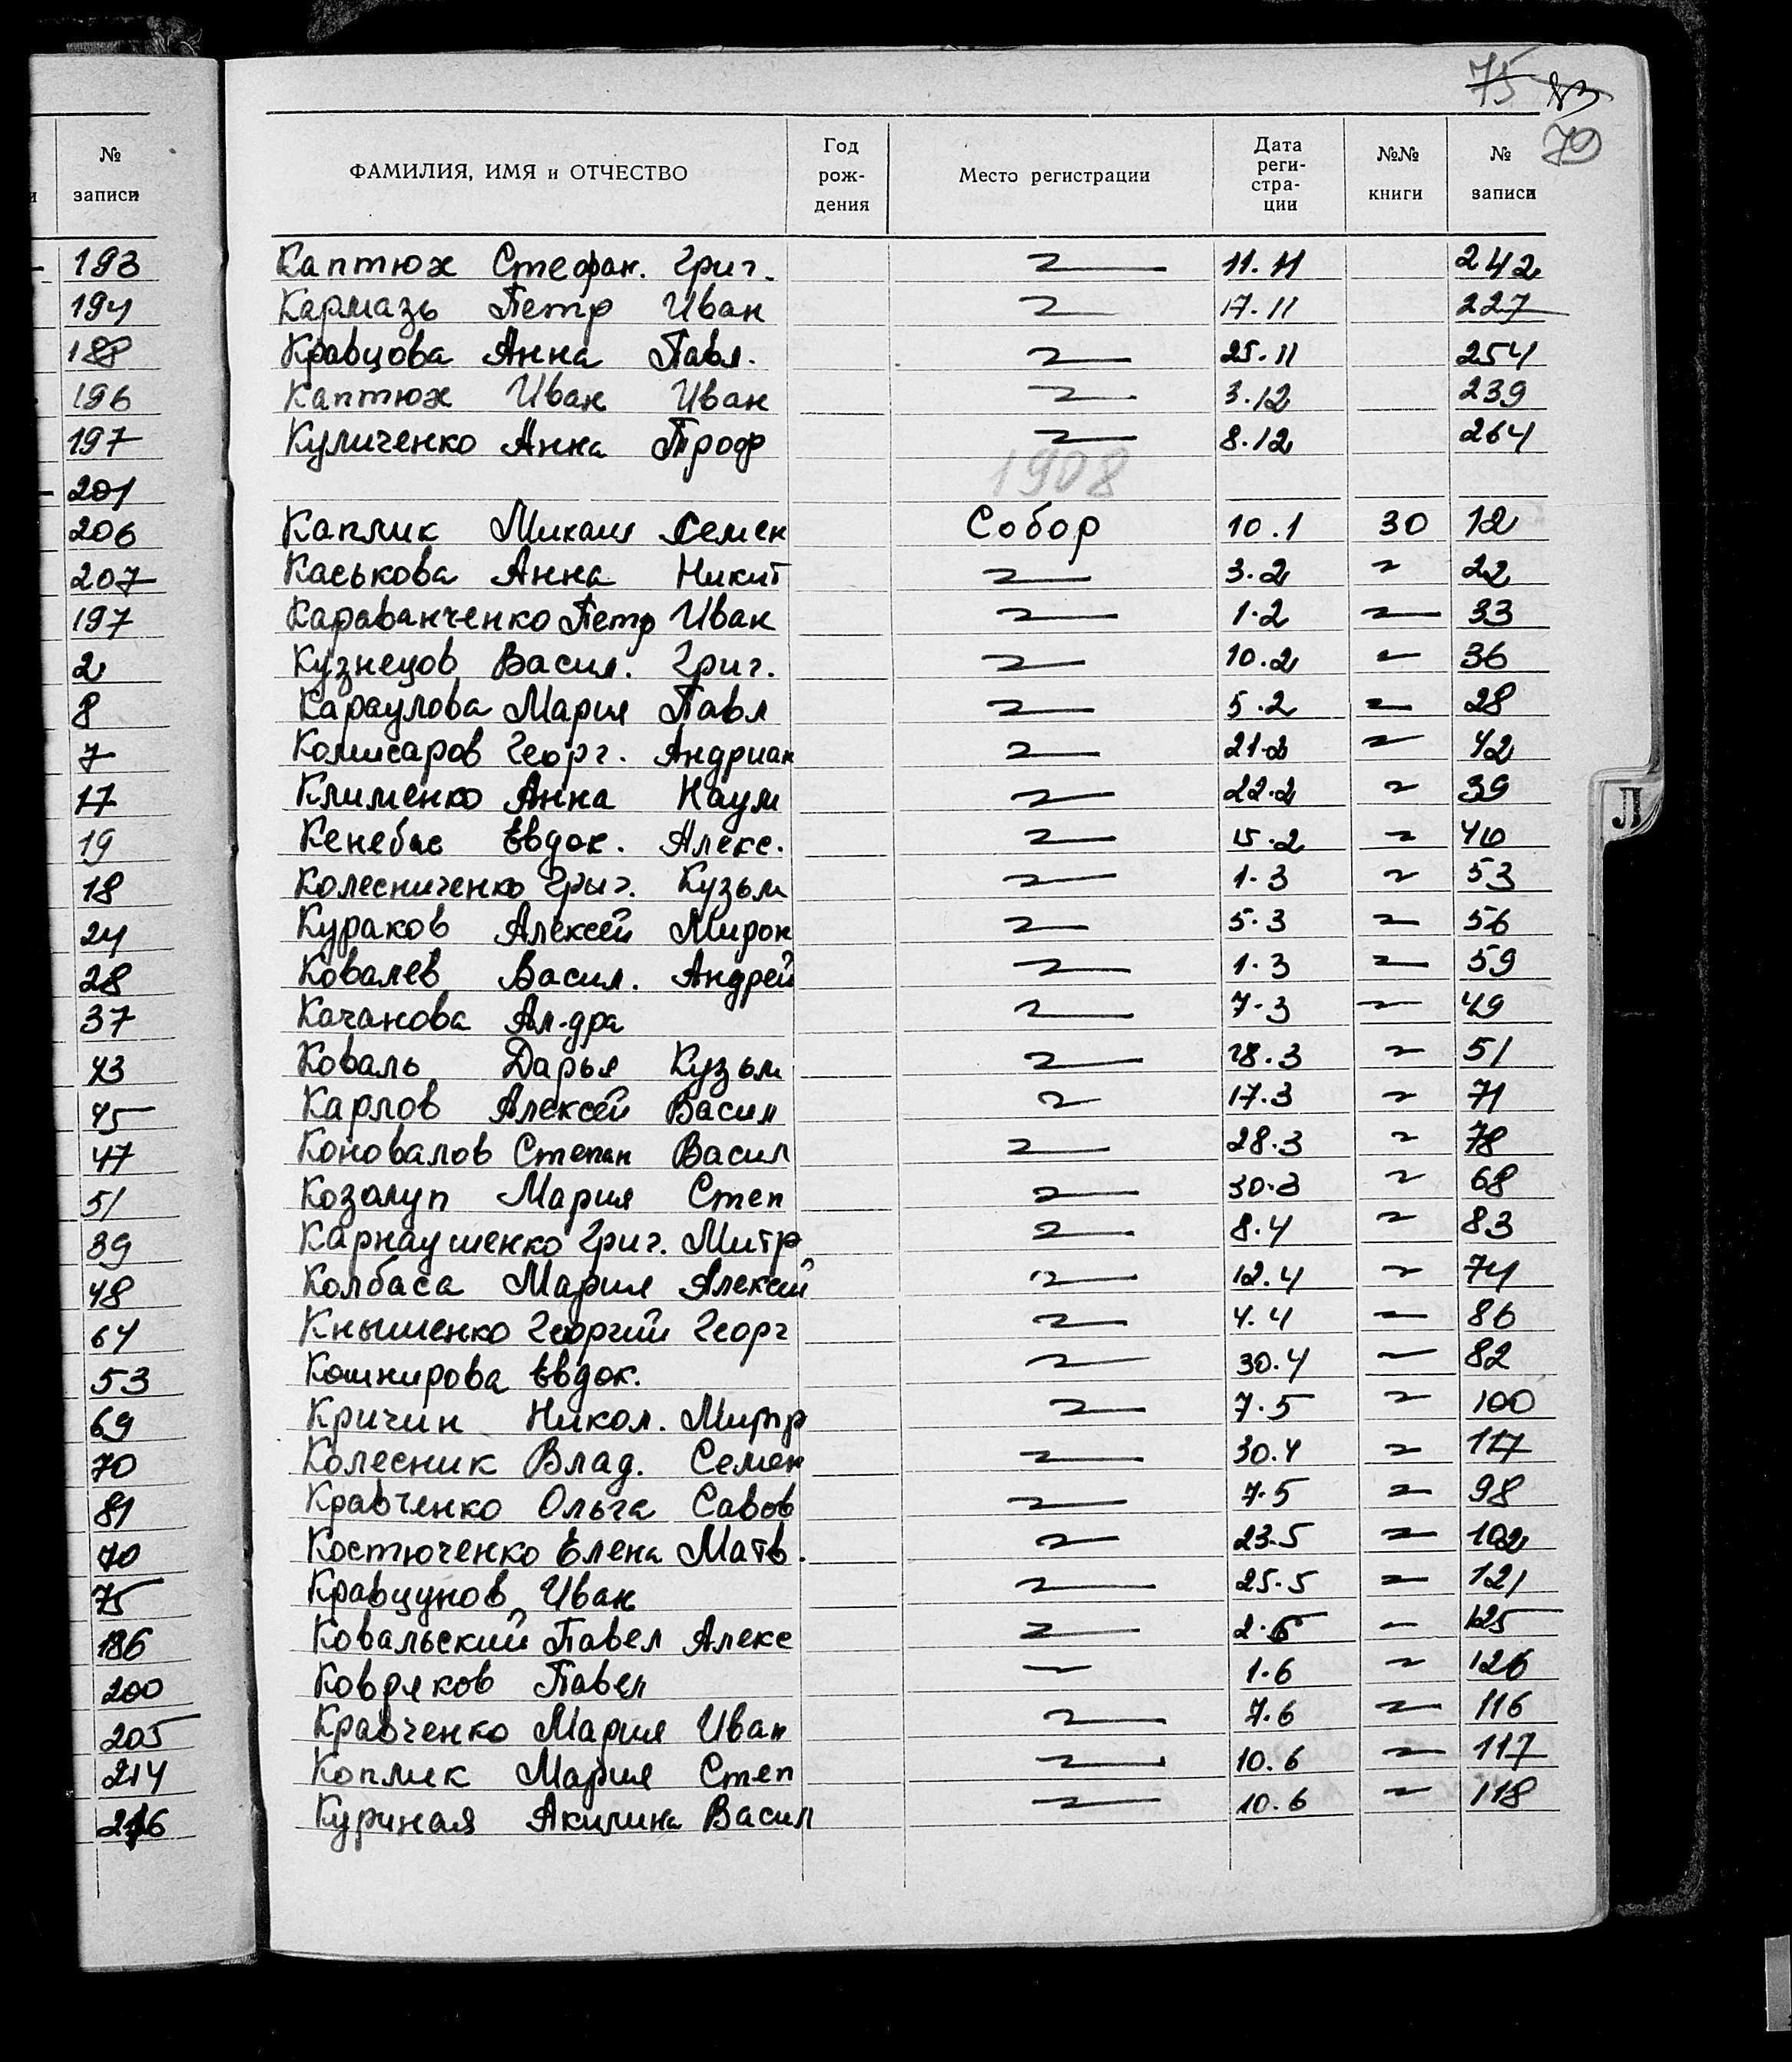 75 83
79
№ записи
193
194
188
196
197
201
206
207
197
2
8
7
17
19
18
24
28
37
43
45
47
51
39
48
64
53
69
70
81
70
75
186
200
205
214
216
ФАМИЛИЯ, ИМЯ и ОТЧЕСТВО Год рождения Место регистрации Дата регистрации №№ книги № записи
Каптюх Стефан. Григ. 11.11 242
Кармазь Петр Иван 17.11 227
Кравцова Анна Павл. 25.11 254
Каптюх Иван Иван 3.12 239
Куличенко Анна Проф 8.12 264
1908
Каплик Михаил Семен Собор 10.1 30 12
Каськова Анна Никит 3.2 22
Караванченко Петр Иван 1.2 33
Кузнецов Васил. Григ. 10.2 36
Караулова Мария Павл 5.2 28
Комисаров Георг. Андриан 21.2 42
Клименко Анна Наум 22.2 39
Кенебас Евдок. Алекс. 15.2 40
Колесниченко Григ. Кузьм 1.3 53
Кураков Алексей Мирон 5.3 56
Ковалев Васил. Андрей 1.3 59
Качанова Ал-дра 7.3 49
Коваль Дарья Кузьм 18.3 51
Карлов Алексей Васил 17.3 71
Коновалов Степан Васил 28.3 78
Козолуп Мария Степ 30.3 68
Карнаушенко Григ. Митр 8.4 83
Колбаса Мария Алексей 12.4 74
Кнышенко Георгий Георг 4.4 86
Кошнирова Евдок. 30.4 82
Кричин Никол. Митр 7.5 100
Колесник Влад. Семен 30.4 117
Кравченко Ольга Савов 7.5 98
Костюченко Елена Матв. 23.5 102
Кравцунов Иван 25.5 121
Ковальский Павел Алекс 2.6 125
Ковряков Павел 1.6 126
Кравченко Мария Иван 7.6 116
Коплик Мария Степ 10.6 117
Куриная Акилина Васил 10.6 118
Л